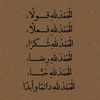 الحمد لله قولًا،
الحمد لله فعلًا،
الحمد لله شكرًا،
الحمد لله رضا،
الحمد لله حبًا،
الحمد لله دائمًا وأبدًا